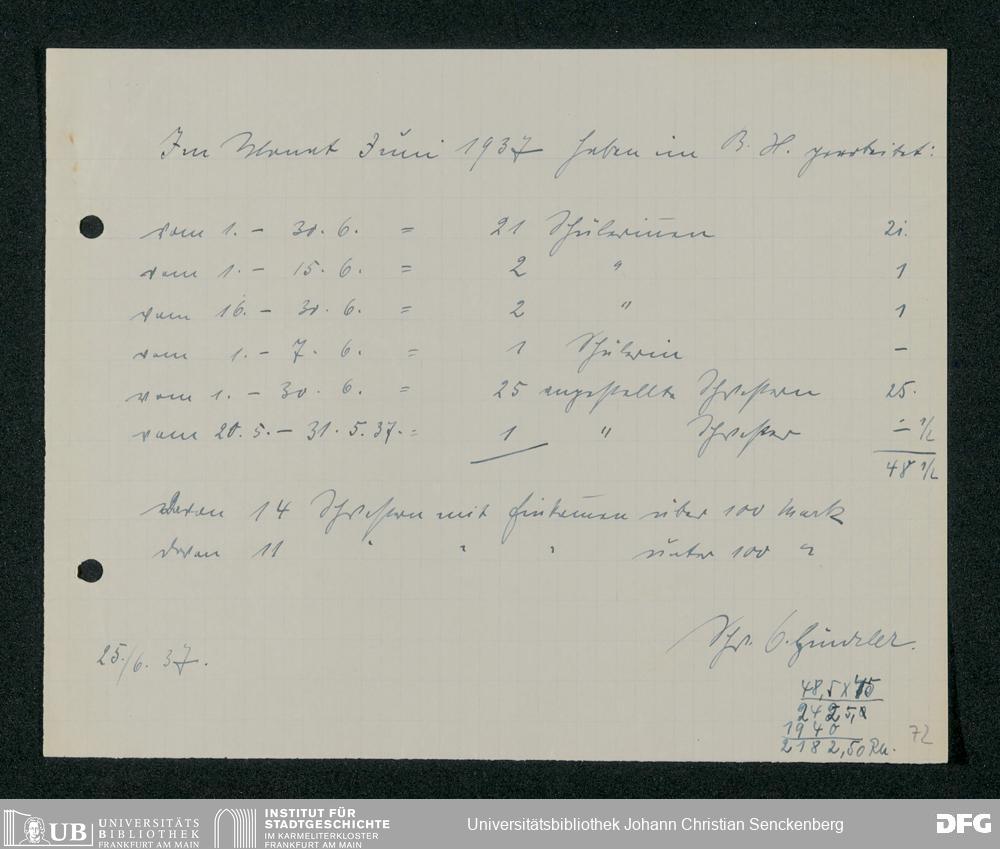 Im Monat Juni 1937 haben im B. H. gearbeitet:
vom 1. – 30. 6. = 21 Schülerinnen 21.
vom 1. – 15. 6. = 2 " 1
vom 16. – 30. 6. = 2 " 1
vom 1. – 7. 6. = 1 Schülerin –
vom 1. – 30. 6. = 25 angestellte Schwestern 25.
vom 20. 5. – 31. 5. 37. = 1 " Schwester – 1/2
48 1/2
davon 14 Schwestern mit Einkommen über 100 Mark
davon 11 " " " unter 100 "
Schw.
25./6. 37.
48,5 x 45
242 5,0
1940
2182,50 Rm.
72
UB UNIVERSITÄTS
BIBLIOTHEK
FRANKFURT AM MAIN
INSTITUT FÜR
STADTGESCHICHTE
IM KARMELITERKLOSTER
FRANKFURT AM MAIN
Universitätsbibliothek Johann Christian Senckenberg
DFG